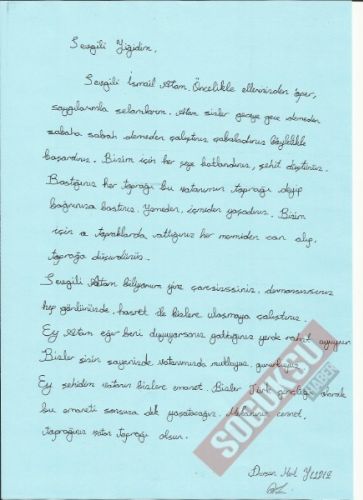 Sevgili Yiğidim,
Sevgili İsmail Atam. Öncelikle ellerinizden öper,
saygılarımla selamlarım. Atam sizler geceye gece demeden
sabaha sabah demeden çalıştınız çabaladınız böylelikle
başardınız. Bizim için her şeye katlandınız, şehit düştünüz.
Bastığınız her toprağı bu vatanımın toprağı deyip
bağrınıza bastınız. Yemeden, içmeden yaşadınız. Bizim
için o topraklarda attığınız her mermiden can alıp,
toprağa düşürdünüz.
Sevgili Atam biliyorum yine çaresizsiniz. dermansızsınız
hep gönlünüzde hasret ile bizlere ulaşmaya çalıştınız.
Ey Atam eğer beni duyuyorsanız yattığınız yerde rahat uyuyun
Bizler sizin sayenizde vatanımızda mutluyuz, gururluyuz.
Ey şehidim vatanın bizlere emanet. Bizler Türk gençliği olarak
bu emaneti sonsuza dek yaşatacağız. Mekanınız cennet,
toprağınız vatan toprağı olsun.
Dursun
SOĞUKSU
HABER